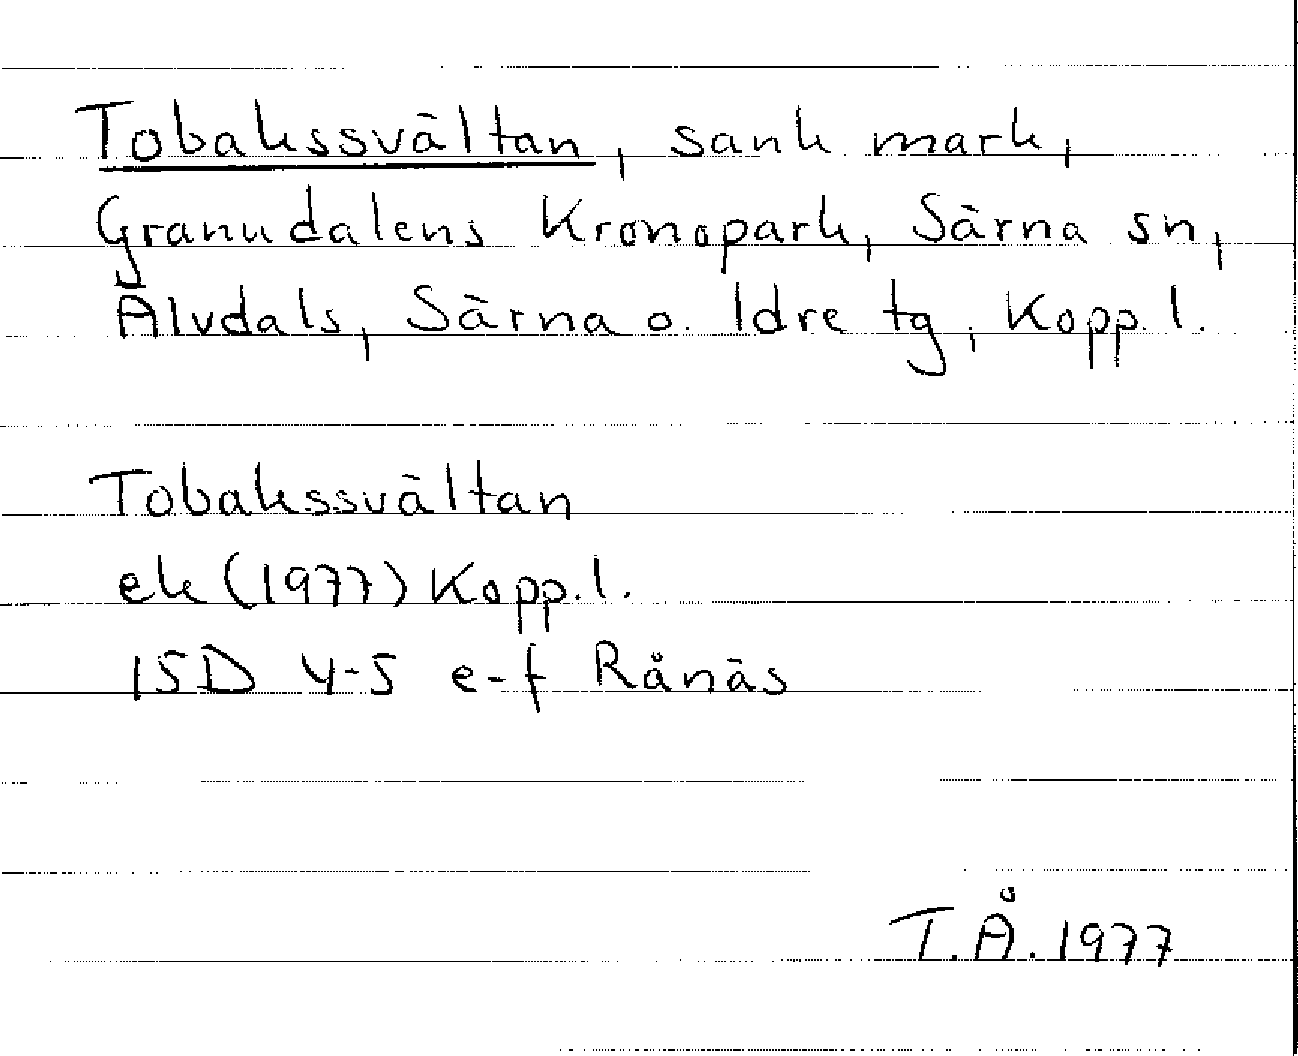 Tobakssvältan, sank mark,
Granudalens Kronopark, Särna sn,
Älvdals, Särna o. Idre tg, Kopp. l.
Tobakssvältan
ek (1977) Kopp. l.
15D 4-5 e-f Rånäs
T.Å. 1977